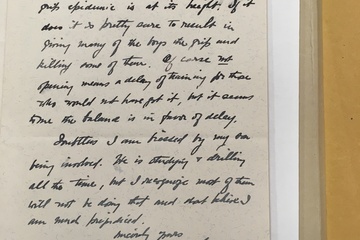 grip epidemic is at its height. If it
does it is pretty sure to result in
giving many of the boys the grip and
killing some of them. Of course not
opening means a delay of training for those
who would not have got it, but it seems
to me the balance is in favor of delay.
Doubtless I am biased by my own
being involved. He is studying & drilling
all the time, but I recognize most of them
will not be doing that and that
I am prejudiced.
Sincerely yours